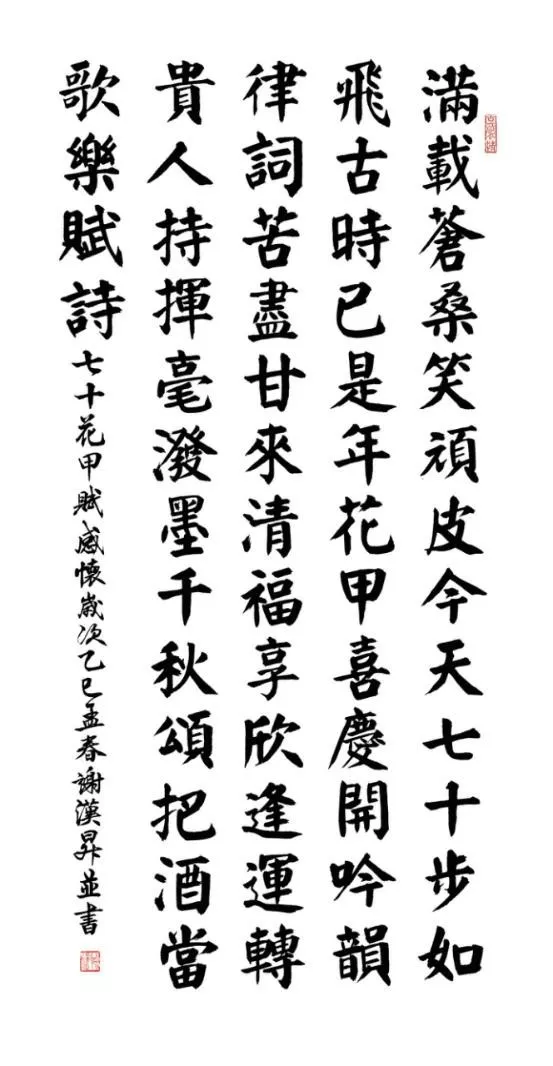 滿載蒼桑笑頑皮今天七十步如
飛古時已是年花甲喜慶開吟韻
律詞苦盡甘來清福享欣逢運轉
貴人持揮毫潑墨千秋頌把酒當
歌樂賦詩
七十花甲賦感懷歲次乙巳孟春謝漢昇並書